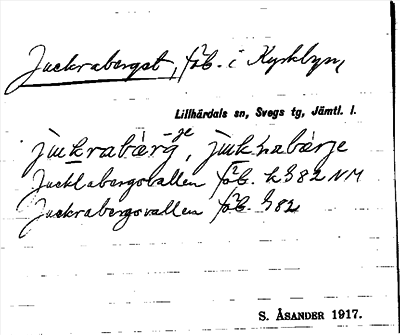 Juckraberget, fäb. i Kyrkbyn,
Lillhärdals sn, Svegs tg, Jämtl. l.
juckrabärge, juckrabärje
Jucklabergsvallen fäb. k 382 NM
Juckrabergsvallen fäb. 382
S. ÅSANDER 1917.